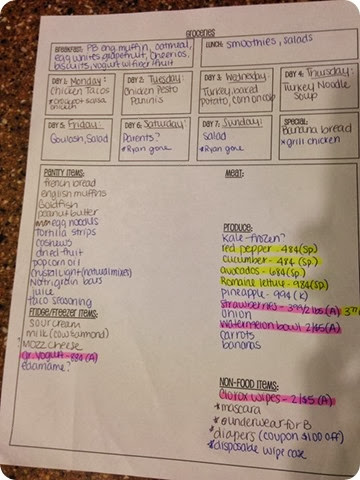 GROCERIES
BREAKFAST: PB eng. muffin, oatmeal,
egg whites, grapefruit, cheerios,
biscuits, yogurt w/fiber fruit
LUNCH: smoothies, salads
DAY 1: Monday:
Chicken Tacos
*crockpot salsa
chicken
DAY 2: Tuesday:
Chicken Pesto
Paninis
DAY 3: Wednesday:
Turkey, loaded
potato, corn on cob
DAY 4: Thursday:
Turkey Noodle
Soup
DAY 5: Friday:
Goulash, Salad
DAY 6: Saturday:
Parents?
*Ryan gone
DAY 7: Sunday:
Salad
*Ryan gone
SPECIAL:
Banana bread
*grill chicken
PANTRY ITEMS:
french bread
english muffins
Goldfish
peanut butter
egg noodles
tortilla strips
cashews
dried fruit
popcorn oil
Crystal light (natural mixes)
Nutrigrain bars
juice
taco seasoning
FRIDGE/FREEZER ITEMS:
sour cream
milk (cow + almond)
mozz cheese
gr. yogurt - 88¢ (A)
edamame?
MEAT:
PRODUCE:
Kale - frozen?
red pepper - 48¢ (Sp)
cucumber - 48¢ (Sp)
avocados - 68¢ (Sp)
Romaine lettuce - 98¢ (Sp)
pineapple - 99¢ (K)
strawberries - 3.99/2 lbs (A)
onion
watermelon bowl 2/$5 (A)
carrots
bananas
NON-FOOD ITEMS:
Clorox wipes - 2/$5 (A)
*mascara
*underwear for B
*diapers (coupon $1.00 off)
*disposable wipe case